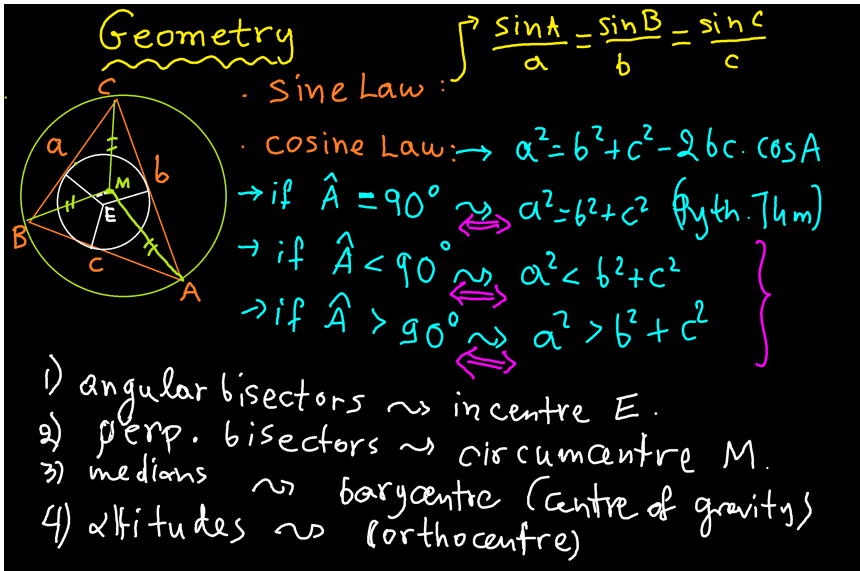 Geometry
sinA/a = sinB/b = sinC/c
. Sine Law :
. Cosine Law: → a²=b²+c²-2bc.cosA
→ if Â = 90° ⇝ ⇔ a²=b²+c² (Pyth. Thm)
→ if Â < 90° ⇝ ⇔ a² < b²+c²
→ if Â > 90° ⇝ ⇔ a² > b²+c²
C
a
b
M
E
B
c
A
1) angular bisectors ⇝ incentre E.
2) perp. bisectors ⇝ circumcentre M.
3) medians ⇝ barycentre (centre of gravity)
4) altitudes ⇝ (orthocentre)